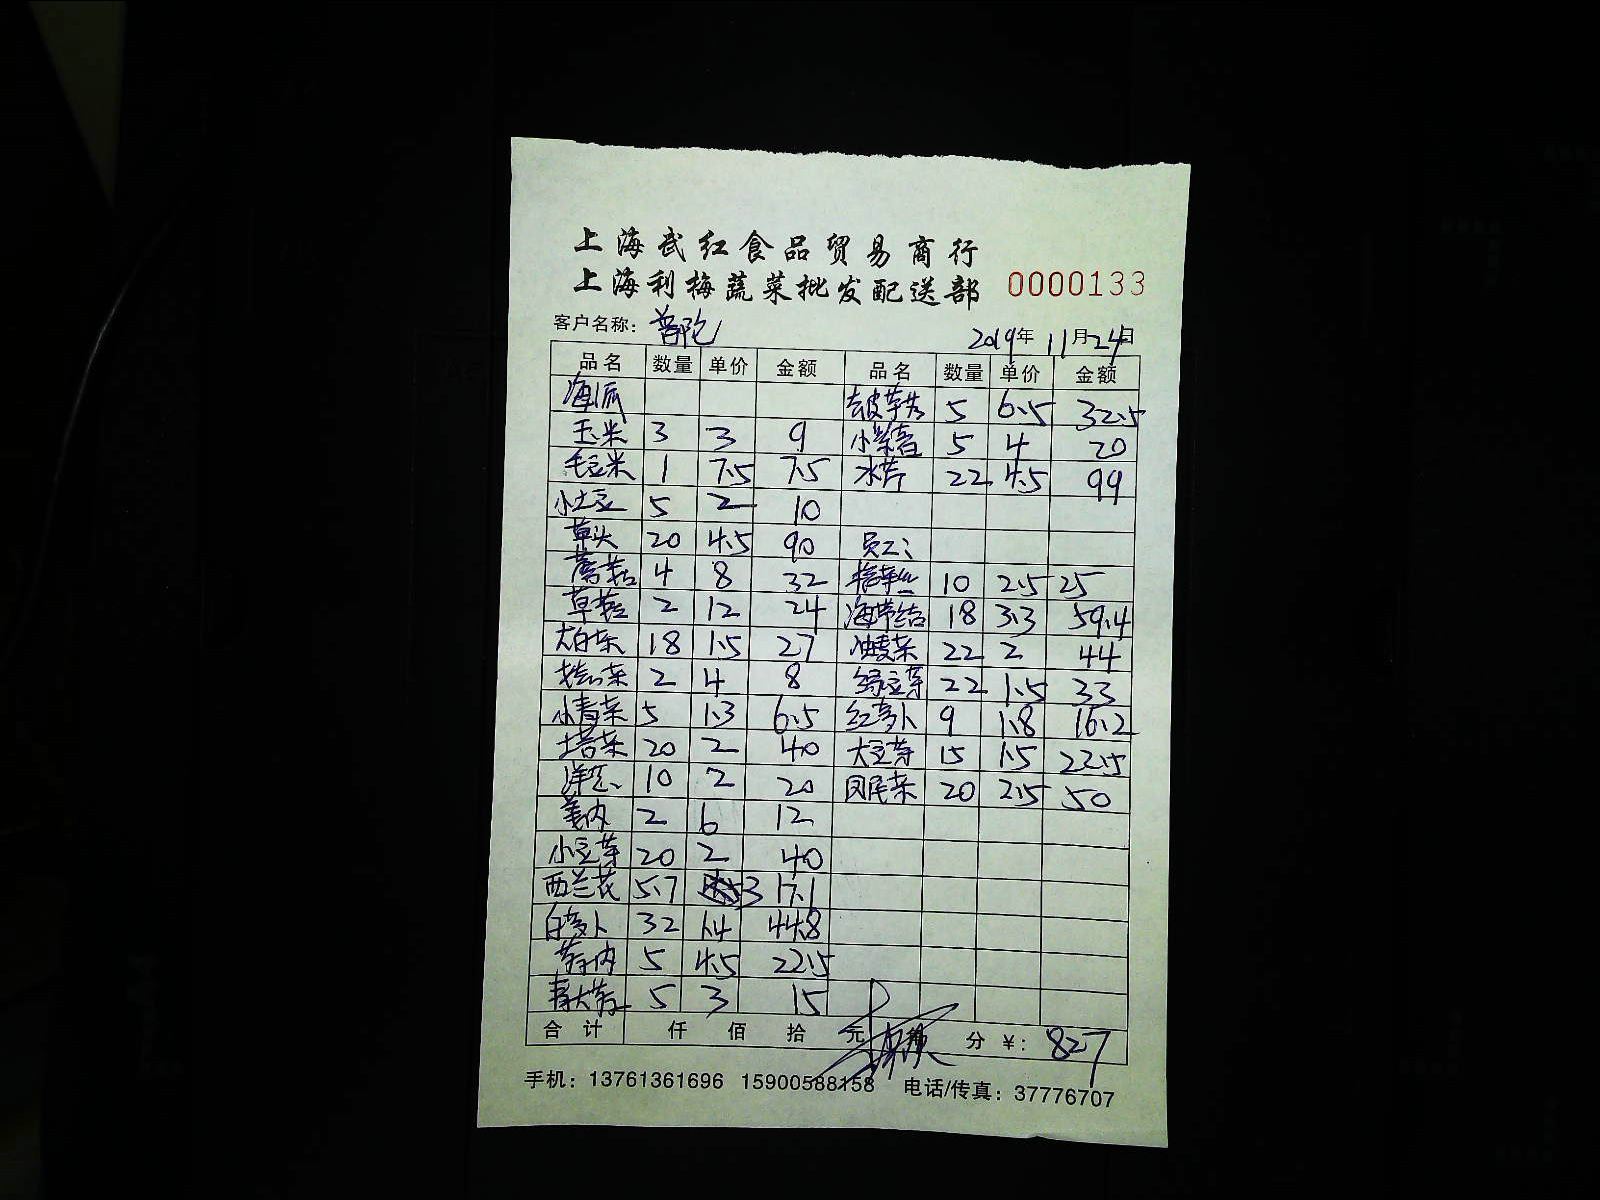 上海武红食品贸易商行
上海利梅蔬菜批发配送部 0000133
客户名称: 普陀 2019年11月24日
品名 数量 单价 金额 品名 数量 单价 金额
海派 去皮芋艿 5 6.5 32.5
玉米 3 3 9 5 4 20
毛豆米 1 7.5 7.5 水芹 22 4.5 99
小土豆 5 2 10
草头 20 4.5 90 员工:
蘑菇 4 8 32 10 2.5 25
草菇 2 12 24 海带结 18 3.3 59.4
大白菜 18 1.5 27 油麦菜 22 2 44
2 4 8 绿豆芽 22 1.5 33
小青菜 5 1.3 6.5 红萝卜 9 1.8 16.2
塔菜 20 2 40 大豆芽 15 1.5 22.5
洋芋 10 2 20 凤尾菜 20 2.5 50
姜肉 2 6 12
小豆芽 20 2 40
西兰花 5.7 3 17.1
白萝卜 32 1.4 44.8
5 4.5 22.5
青大蒜 5 3 15
合计 仟 佰 拾 元 角 分 ¥: 827
手机: 13761361696 15900588158 电话/传真: 37776707